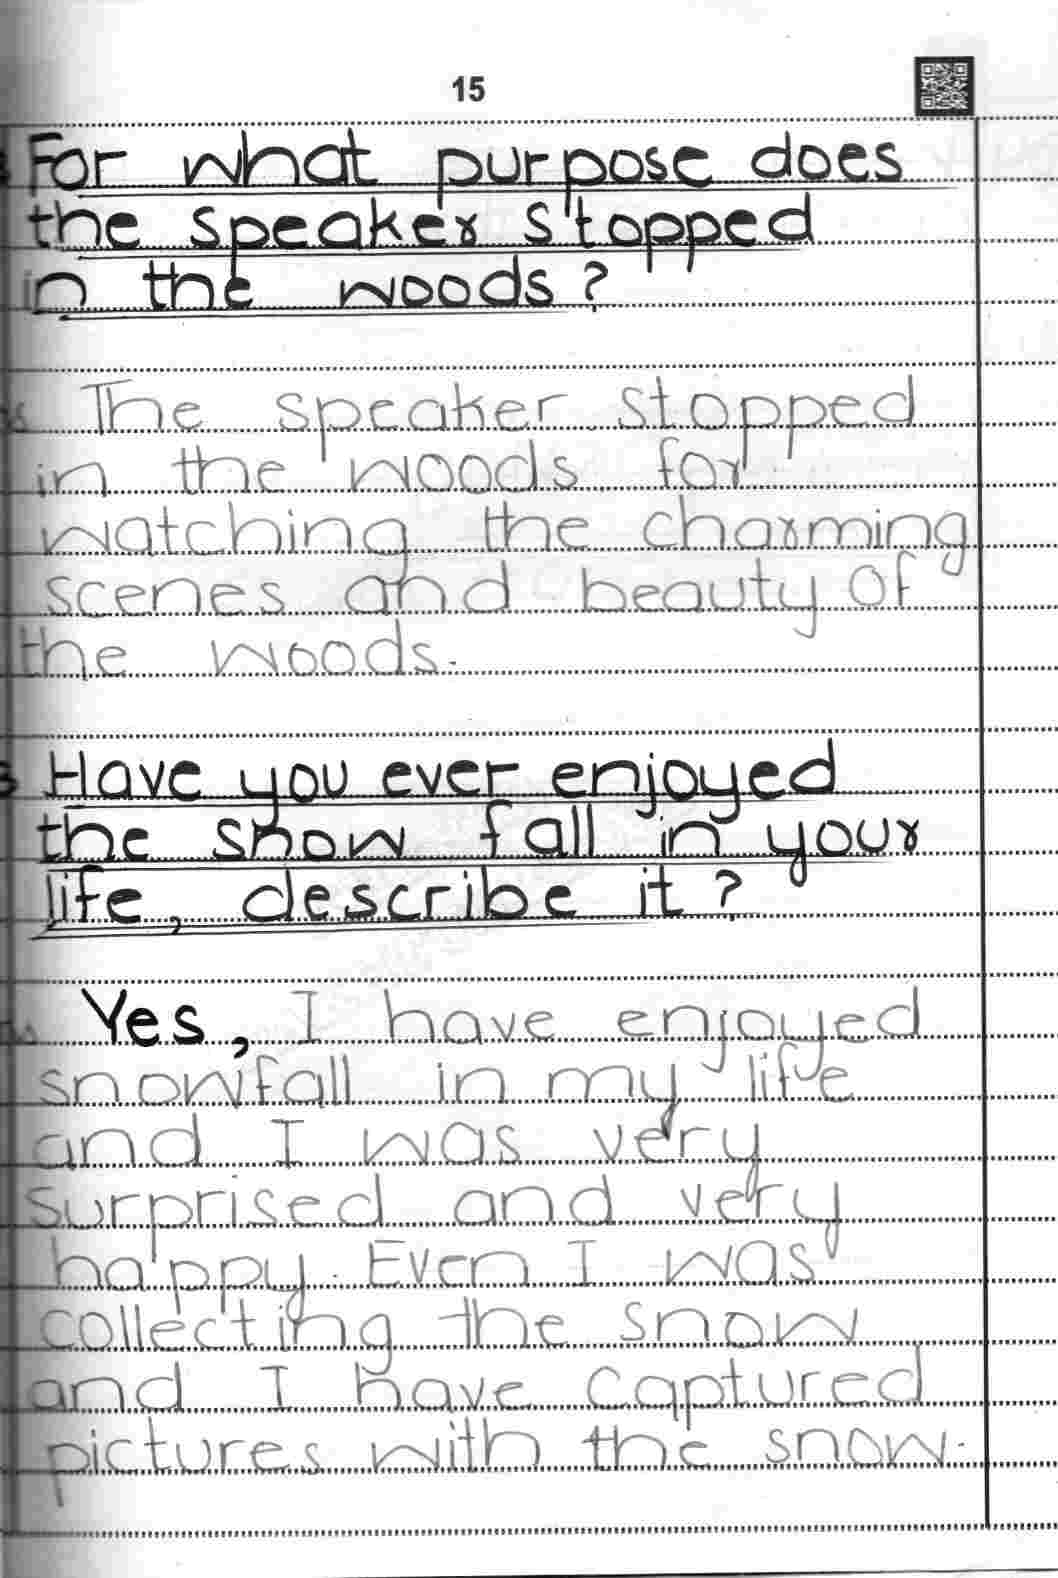 15
For what purpose does
the speaker stopped
in the woods?
The speaker stopped
in the woods for
watching the charming
scenes and beauty of
the woods.
Have you ever enjoyed
the snow fall in your
life, describe it?
Yes, I have enjoyed
snowfall in my life
and I was very
surprised and very
happy. Even I was
collecting the snow
and I have captured
pictures with the snow.